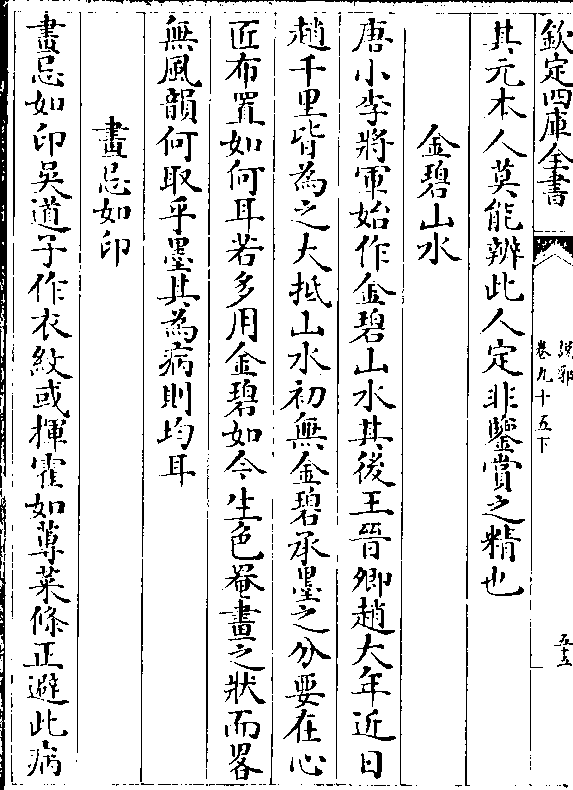 欽定四庫全書
說郛
卷九十五下
五十五
其元本人莫能辨此人定非鑒賞之精也
金碧山水
唐小李將軍始作金碧山水其後王晉卿趙大年近日
趙千里皆為之大抵山水初無金碧承墨之分要在心
匠布置如何耳若多用金碧如今生色罨畫之狀而畧
無風韻何取乎墨其為病則均耳
畫忌如印
畫忌如印吳道子作衣紋或揮霍如蓴菜條正避此病